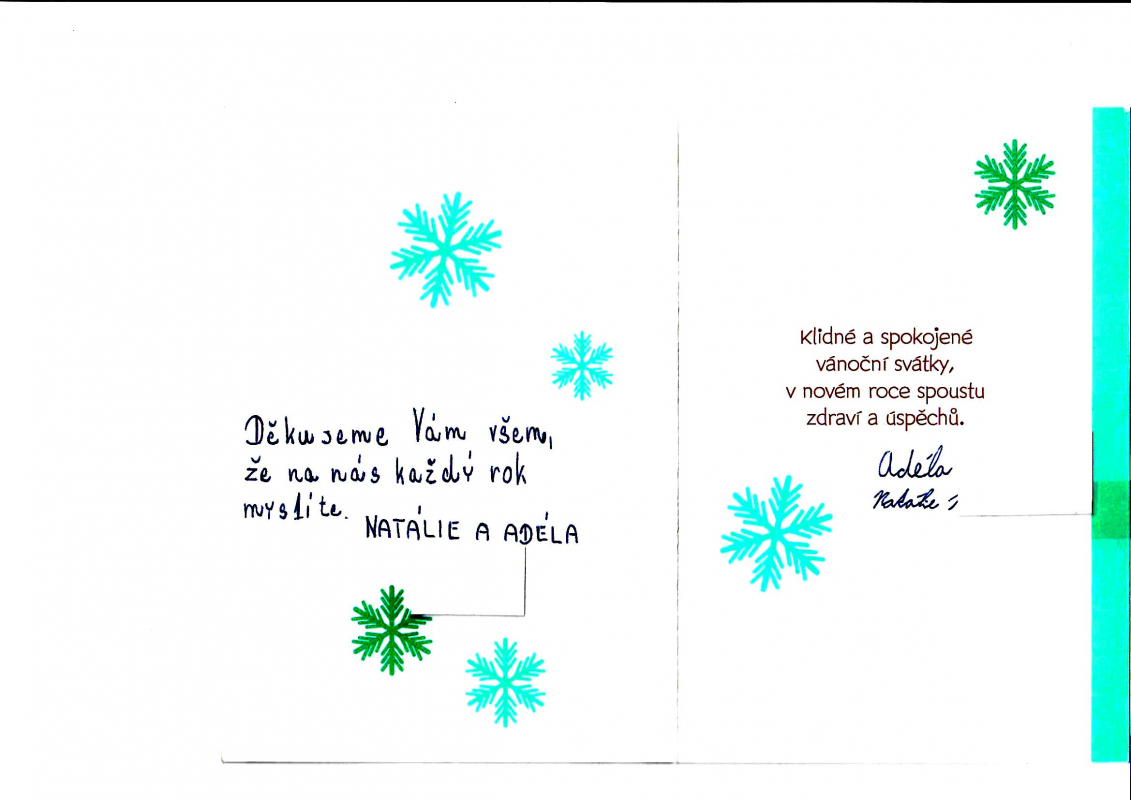 Děkujeme Vám všem,
že na nás každý rok
myslíte.
NATÁLIE A ADÉLA
Klidné a spokojené
vánoční svátky,
v novém roce spoustu
zdraví a úspěchů.
Adéla
Natálie